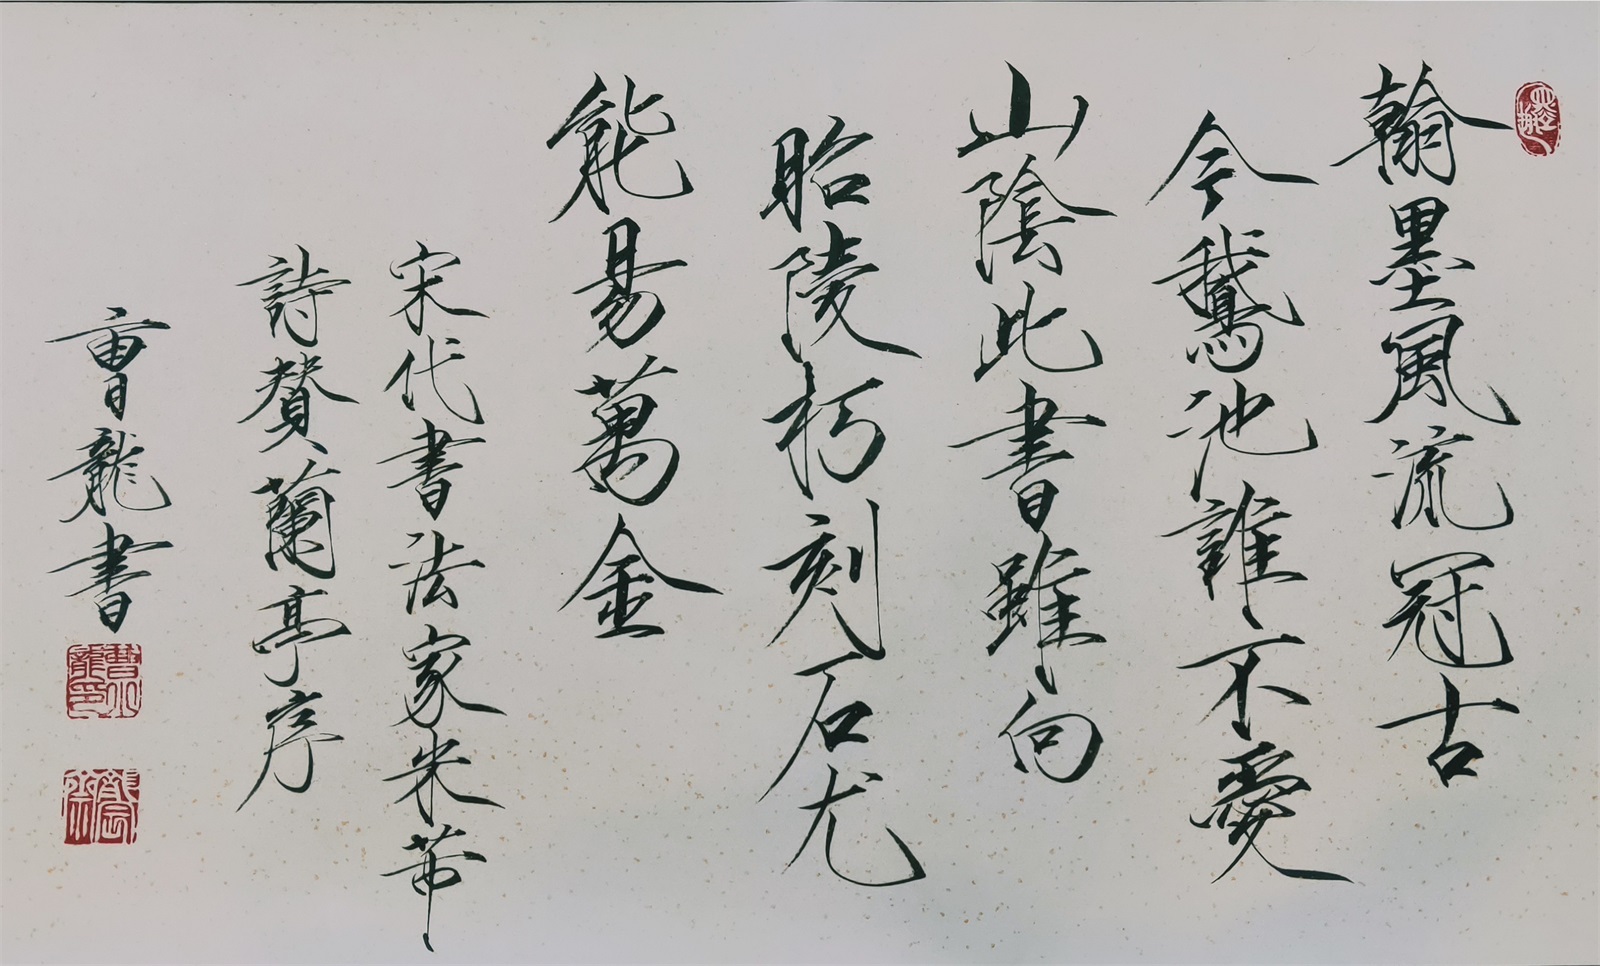 翰墨風流冠古
今鵝池誰不愛
山陰此書雖向
昭陵朽刻石尤
能易萬金
宋代書法家米芾
詩贊蘭亭序
曹龍書